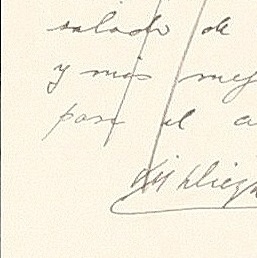 salado de
y mis mej
para el a